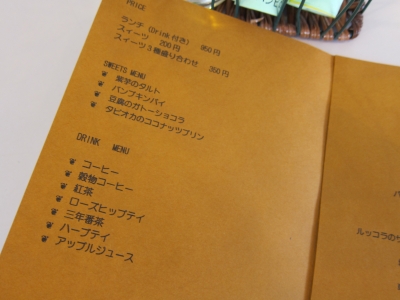 PRICE
ランチ (Drink付き) 850円
スイーツ 200円
スイーツ3種盛り合わせ 350円
SWEETS MENU
紫芋のタルト
パンプキンパイ
豆腐のガトーショコラ
タピオカのココナッツプリン
DRINK MENU
コーヒー
穀物コーヒー
紅茶
ローズヒップティ
三年番茶
ハーブティ
アップルジュース
ルッコラのサ